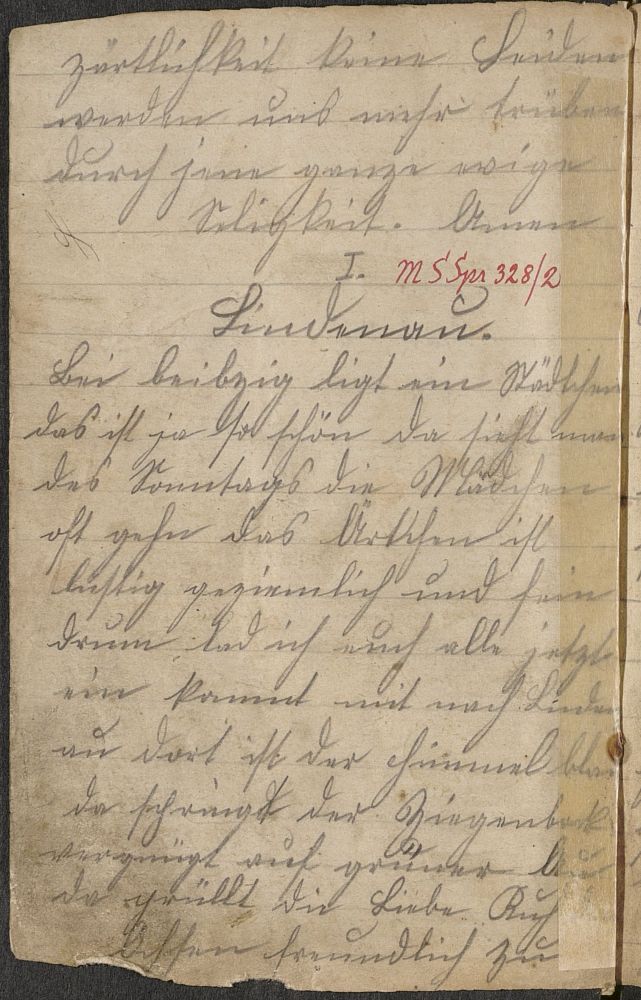 zärtlichkeit keine Leiden
werden uns mehr trüben
durch jene ganze ewige
Seligkeit. Amen
I. MS Spr 328/2
Lindenau.
Bei leibzig ligt ein Städtchen
das ist ja so schön da sieht man
des Sonntags die Mädchen
oft gehn das Örtchen ist
lustig geziemlich und fein
drum lad ich euch alle jetzt
ein kommt mit nach Linden
au dort ist der Himmel blau
da schpringt der Ziegenbock
vergnügt auf grüner Au
da prüllt die Liebe Kuh
freundlich zu